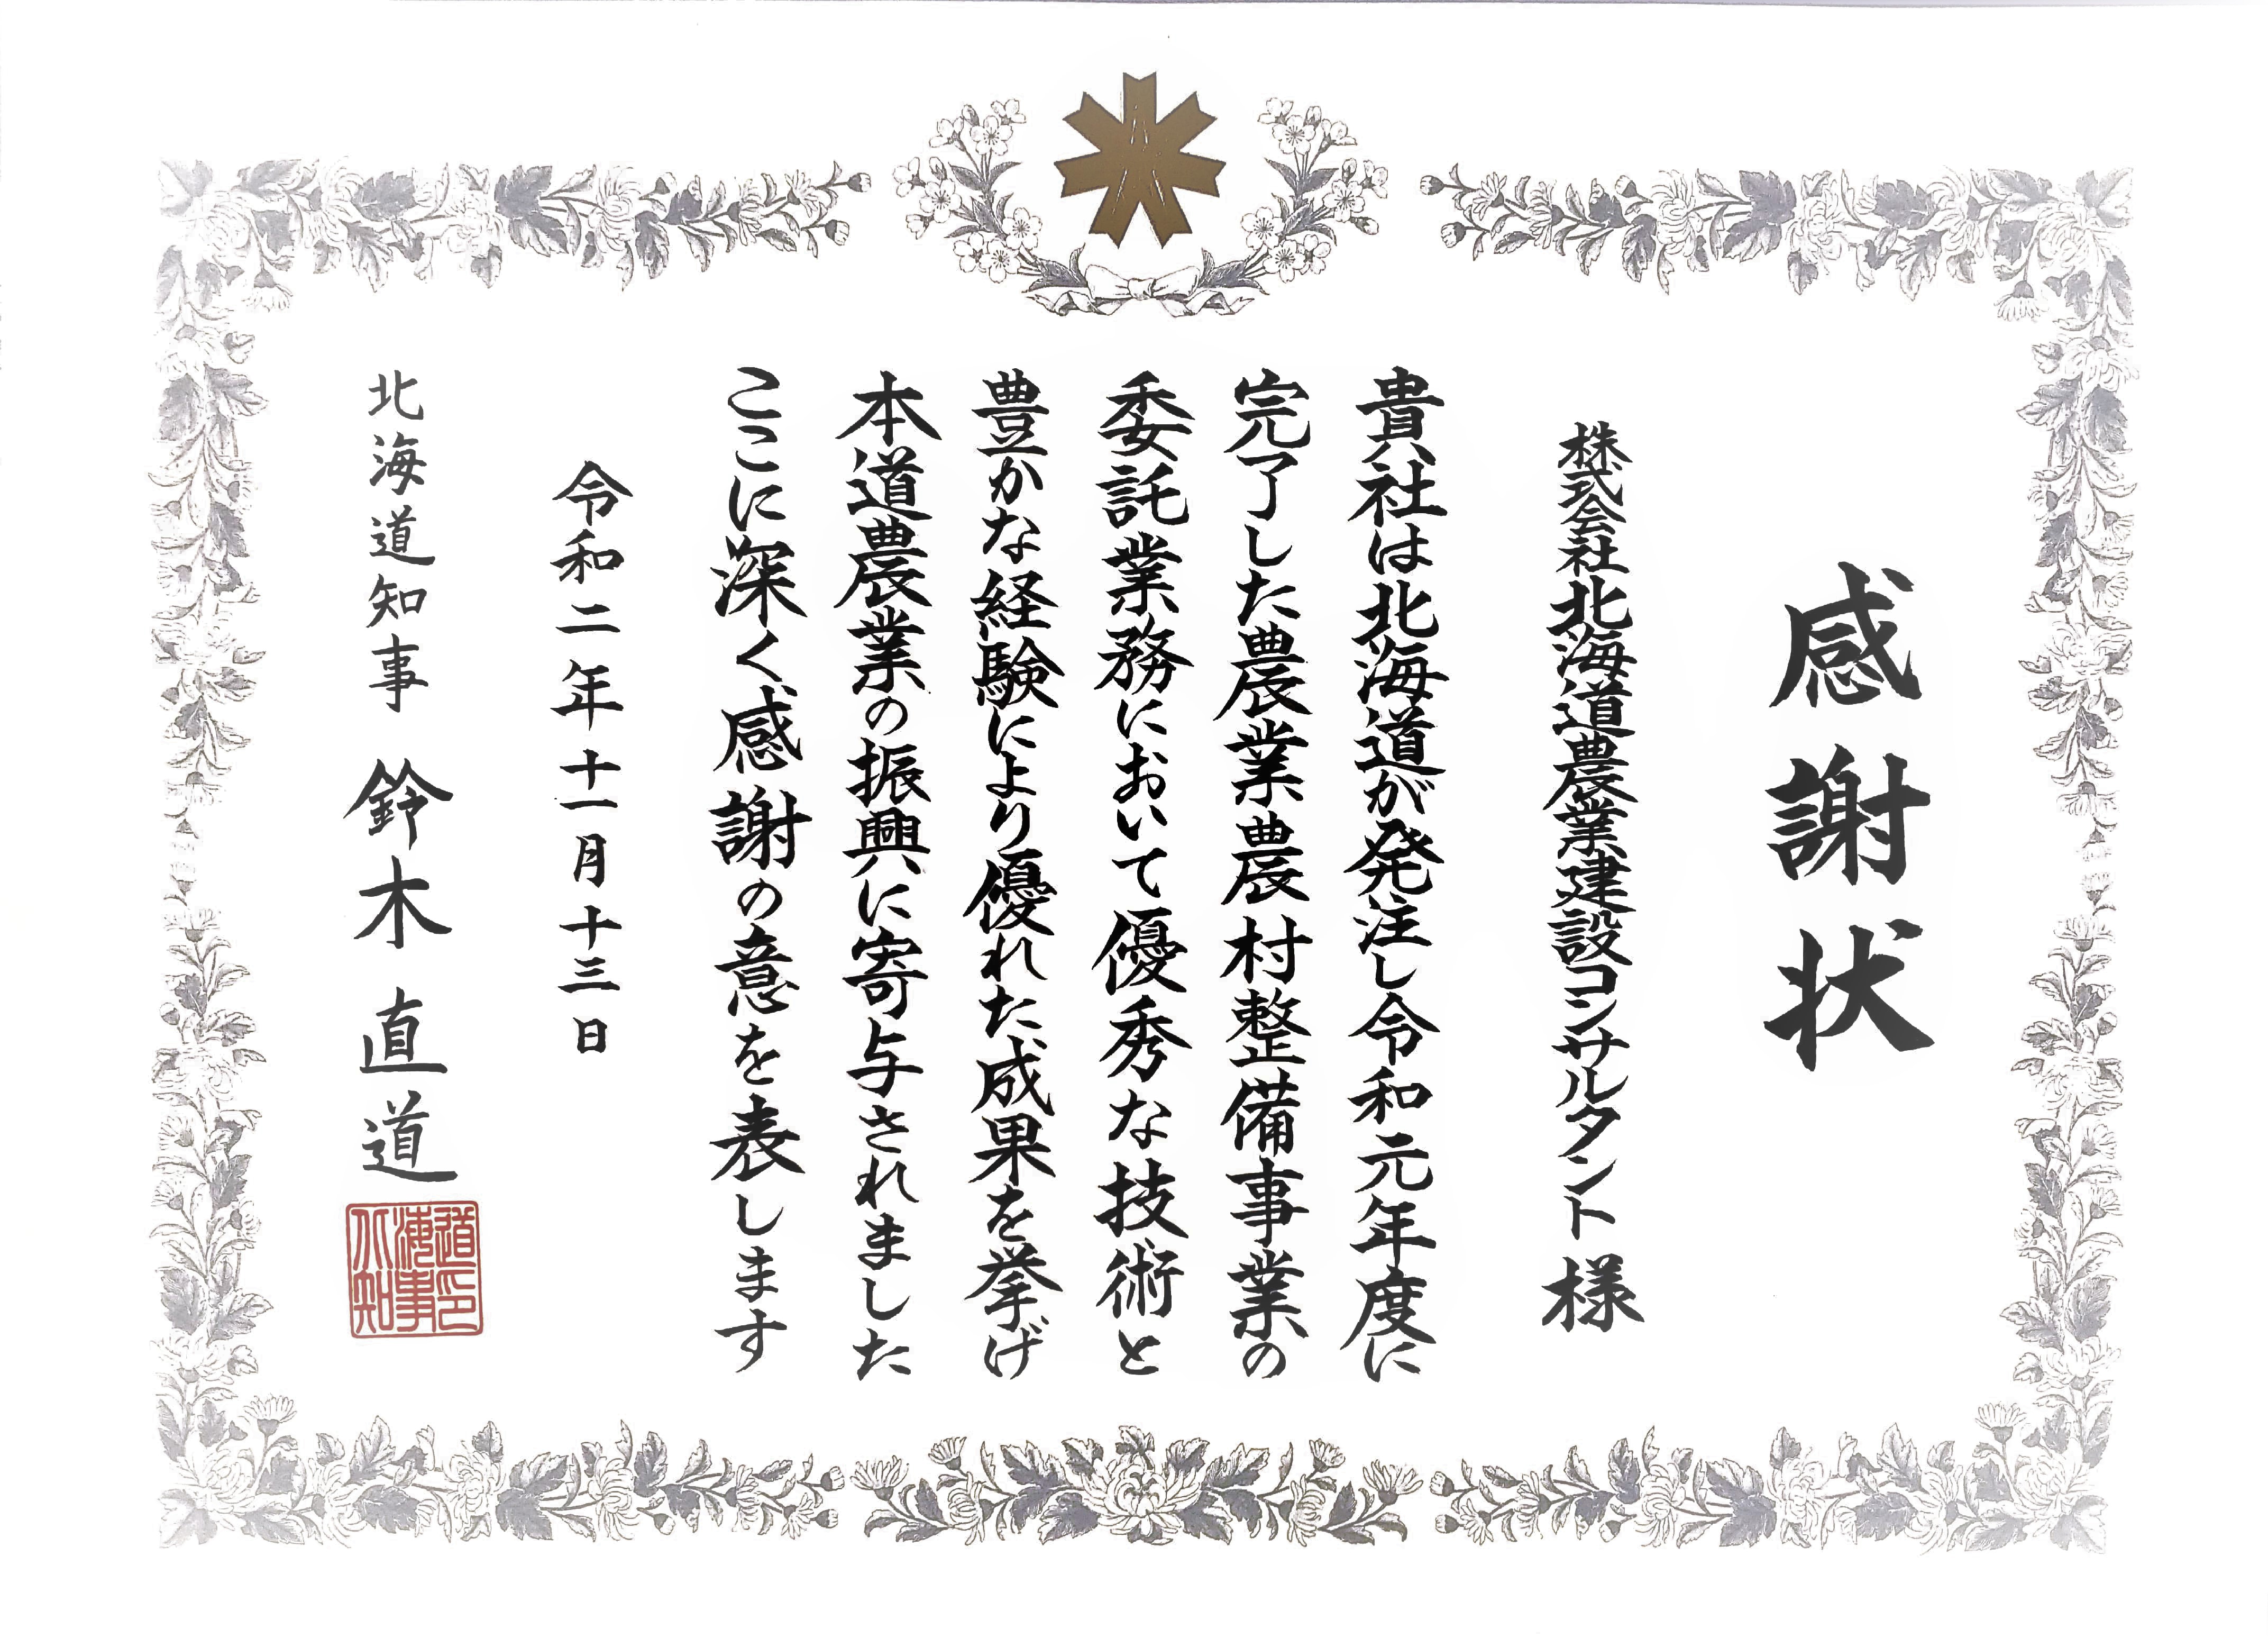 感謝状
株式会社北海道農業建設コンサルタント様
貴社は北海道が発注し令和元年度に
完了した農業農村整備事業の
委託業務において優秀な技術と
豊かな経験により優れた成果を挙げ
本道農業の振興に寄与されました
ここに深く感謝の意を表します
令和二年十一月十三日
北海道知事 鈴木直道
北海道知事印